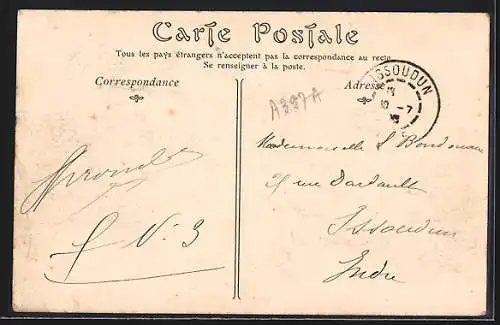 Carte Postale
Tous les pays étrangers n'acceptent pas la correspondance au recto.
Se renseigner à la poste.
Correspondance
Adresse
ISSOUDUN
10-7
A337A
Mademoiselle
rue
Issoudun
Indre
N. 3